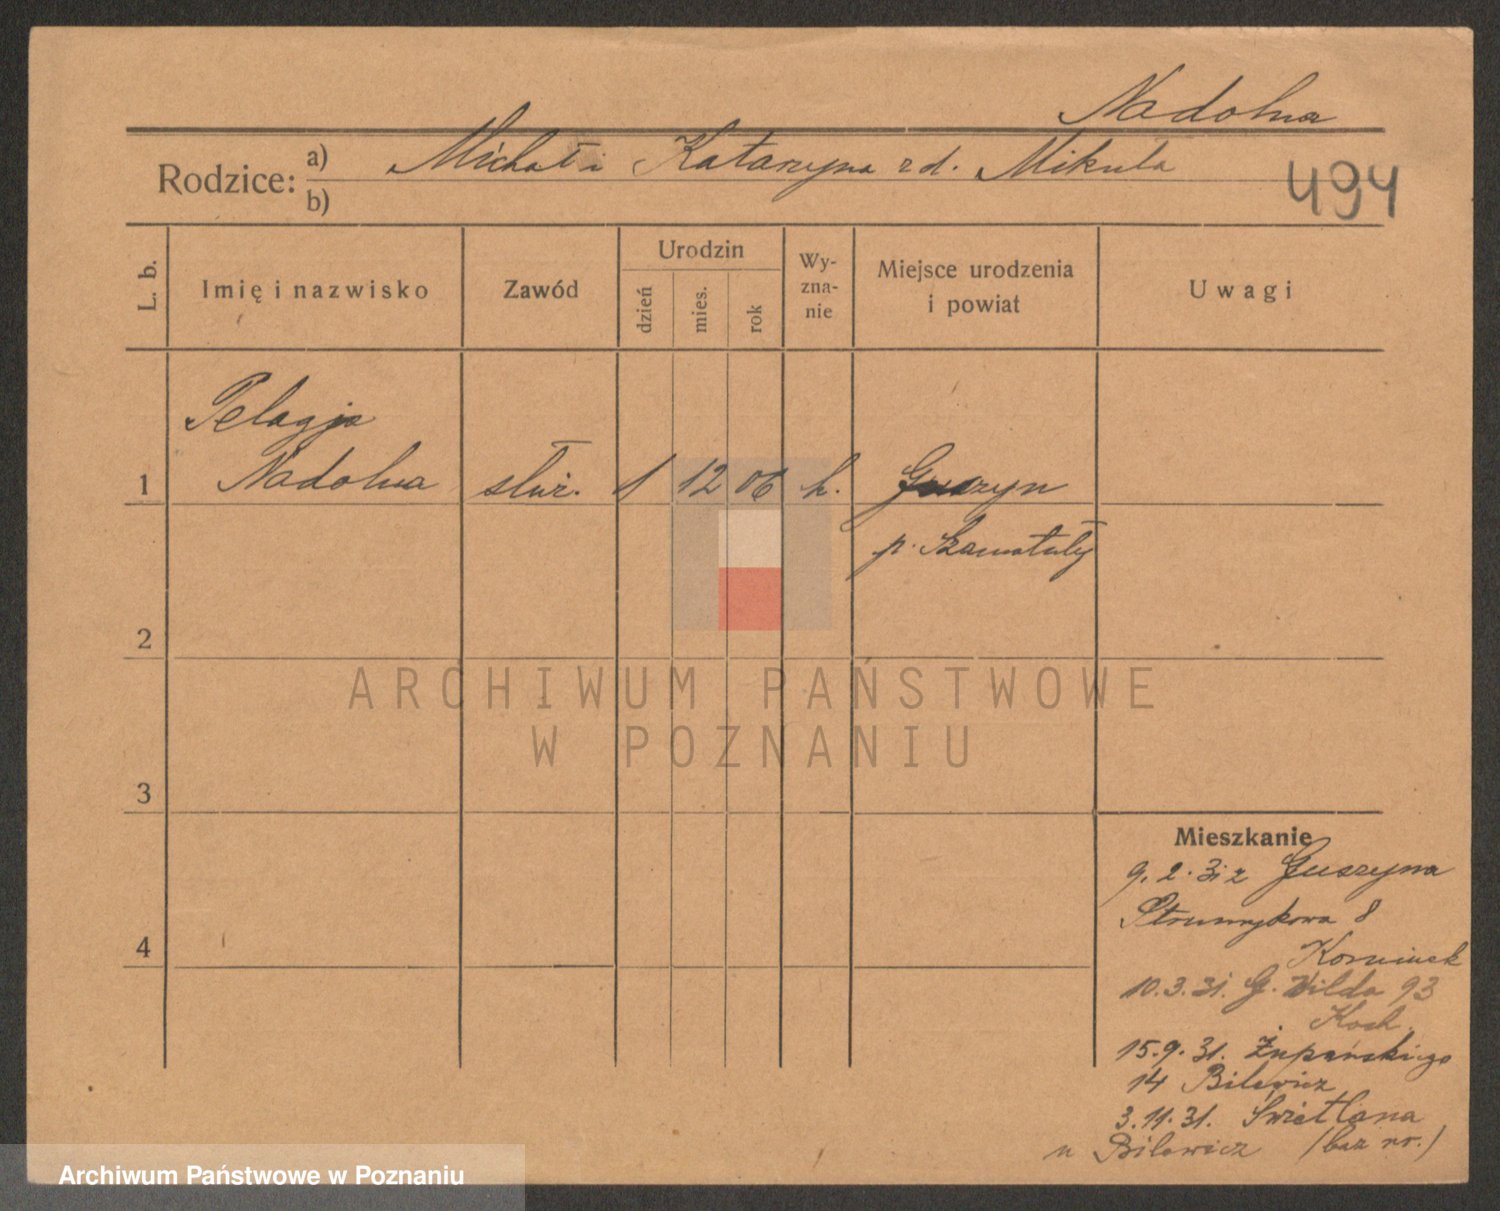 Nadolna
Rodzice: a) Michał i Katarzyna z d. Mikuła
b)
494
L. b.
Imię i nazwisko
Zawód
Urodzin
dzień
mies.
rok
Wy-
zna-
nie
Miejsce urodzenia
i powiat
Uwagi
Pelagja
1 Nadolna służ. 1 12 06 k. Guszyn
p. Szamotuły
2
3
4
ARCHIWUM PAŃSTWOWE
W POZNANIU
Mieszkanie
9. 2. 31 z Guszyna
Strumykowa 8
10. 3. 31. G. Wilda 93
Koch.
15. 9. 31. Żupańskiego
14 Bilewicz
3. 11. 31. Świetlana
u Bilewicz (bez nr.)
Archiwum Państwowe w Poznaniu